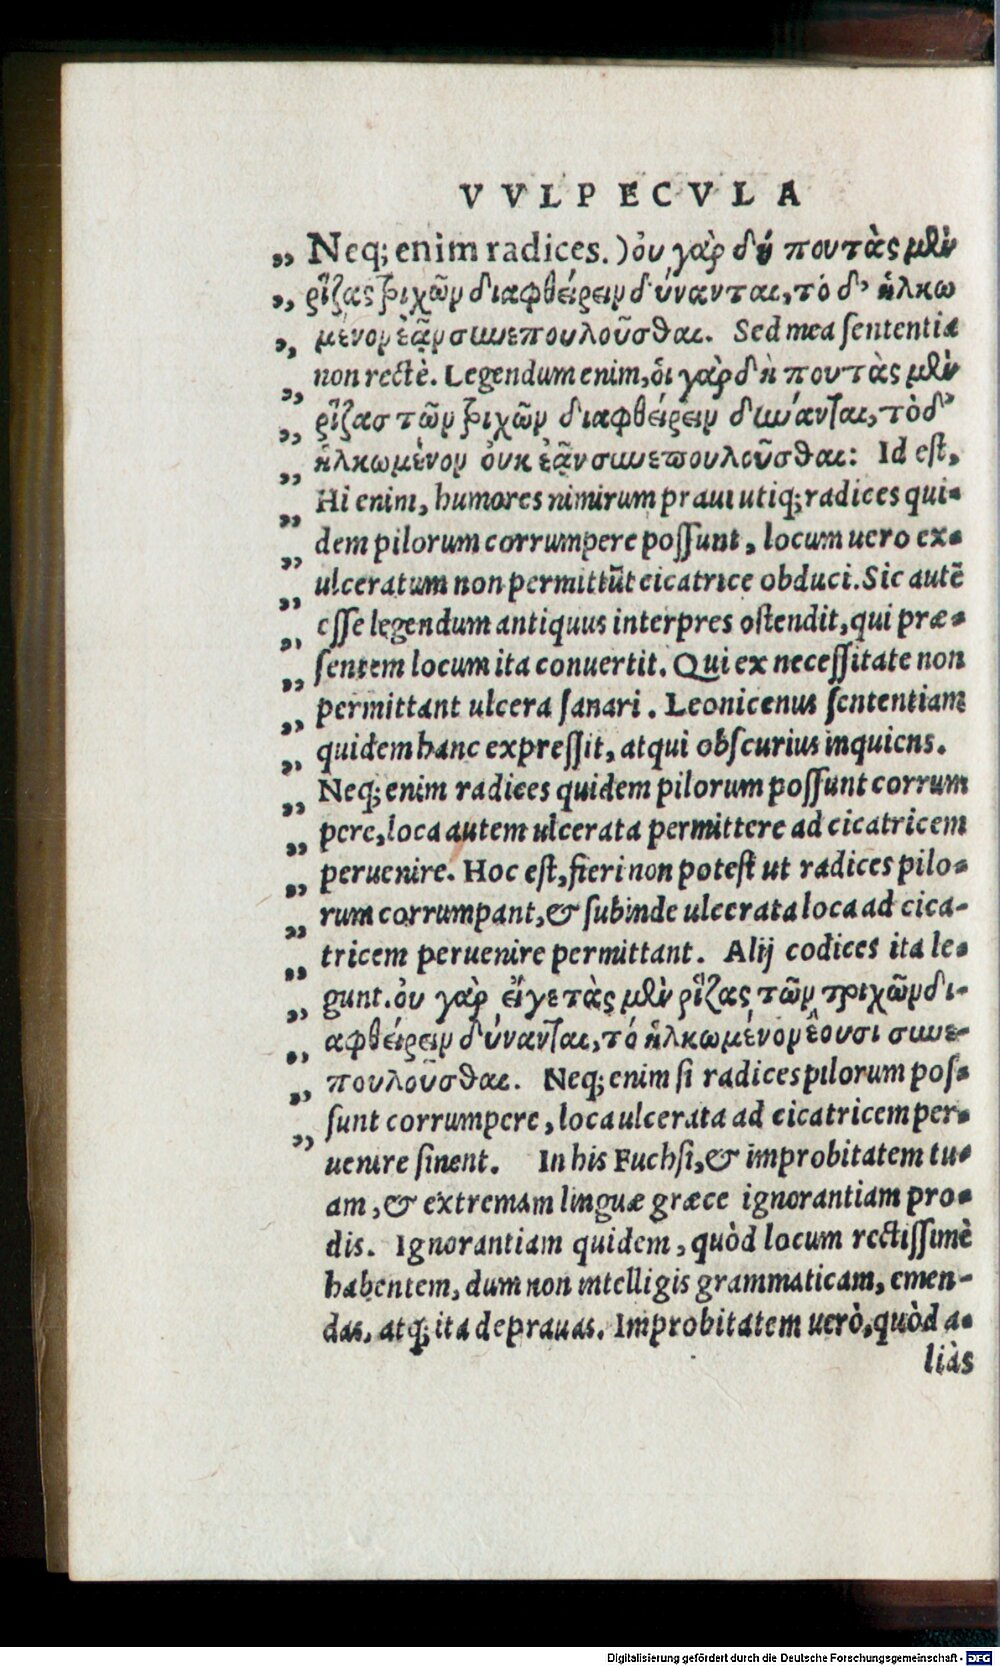 VVLPECVLA
„ Neq; enim radices. ) ὀυ γὰρ δ'ύ πουτὰς μὲν
„ ῥίζας τριχῶν διαφθείρειν δ'ύνανται, τό δ' ἡλκω
„ μένον ἐᾶν συνεπουλοῦσθαι. Sed mea sententia
„ non rectè. Legendum enim, ὁι γὰρ δ'ὴ πουτὰς μὲν
„ ῥίζασ τῶν τριχῶν διαφθείρειν δύνανται, τὸ δ'
„ ἡλκωμένον ὀυκ ἐᾶν συνεπουλοῦσθαι: Id est,
„ Hi enim, humores nimirum praui utiq; radices qui-
„ dem pilorum corrumpere possunt, locum uero ex-
„ ulceratum non permittūt cicatrice obduci. Sic autē
„ esse legendum antiquus interpres ostendit, qui præ-
„ sentem locum ita conuertit. Qui ex necessitate non
„ permittant ulcera sanari. Leonicenus sententiam
„ quidem hanc expressit, atqui obscurius inquiens.
„ Neq; enim radices quidem pilorum possunt corrum
„ pere, loca autem ulcerata permittere ad cicatricem
„ peruenire. Hoc est, fieri non potest ut radices pilo-
„ rum corrumpant, & subinde ulcerata loca ad cica-
„ tricem peruenire permittant. Alij codices ita le-
„ gunt. ὀυ γὰρ ἔιγε τὰς μὲν ῥίζας τῶν τριχῶν δι-
„ αφθείρειν δ'ύνανται, τό ἡλκωμένον ἐουσι συνε-
„ πουλοῦσθαι. Neq; enim si radices pilorum pos-
„ sunt corrumpere, loca ulcerata ad cicatricem per-
uenire sinent. In his Fuchsi, & improbitatem tu-
am, & extremam linguæ græce ignorantiam pro-
dis. Ignorantiam quidem, quòd locum rectissimè
habentem, dum non intelligis grammaticam, emen-
das, atq; ita deprauas. Improbitatem uerò, quòd a-
liàs
Digitalisierung gefördert durch die Deutsche Forschungsgemeinschaft - DFG